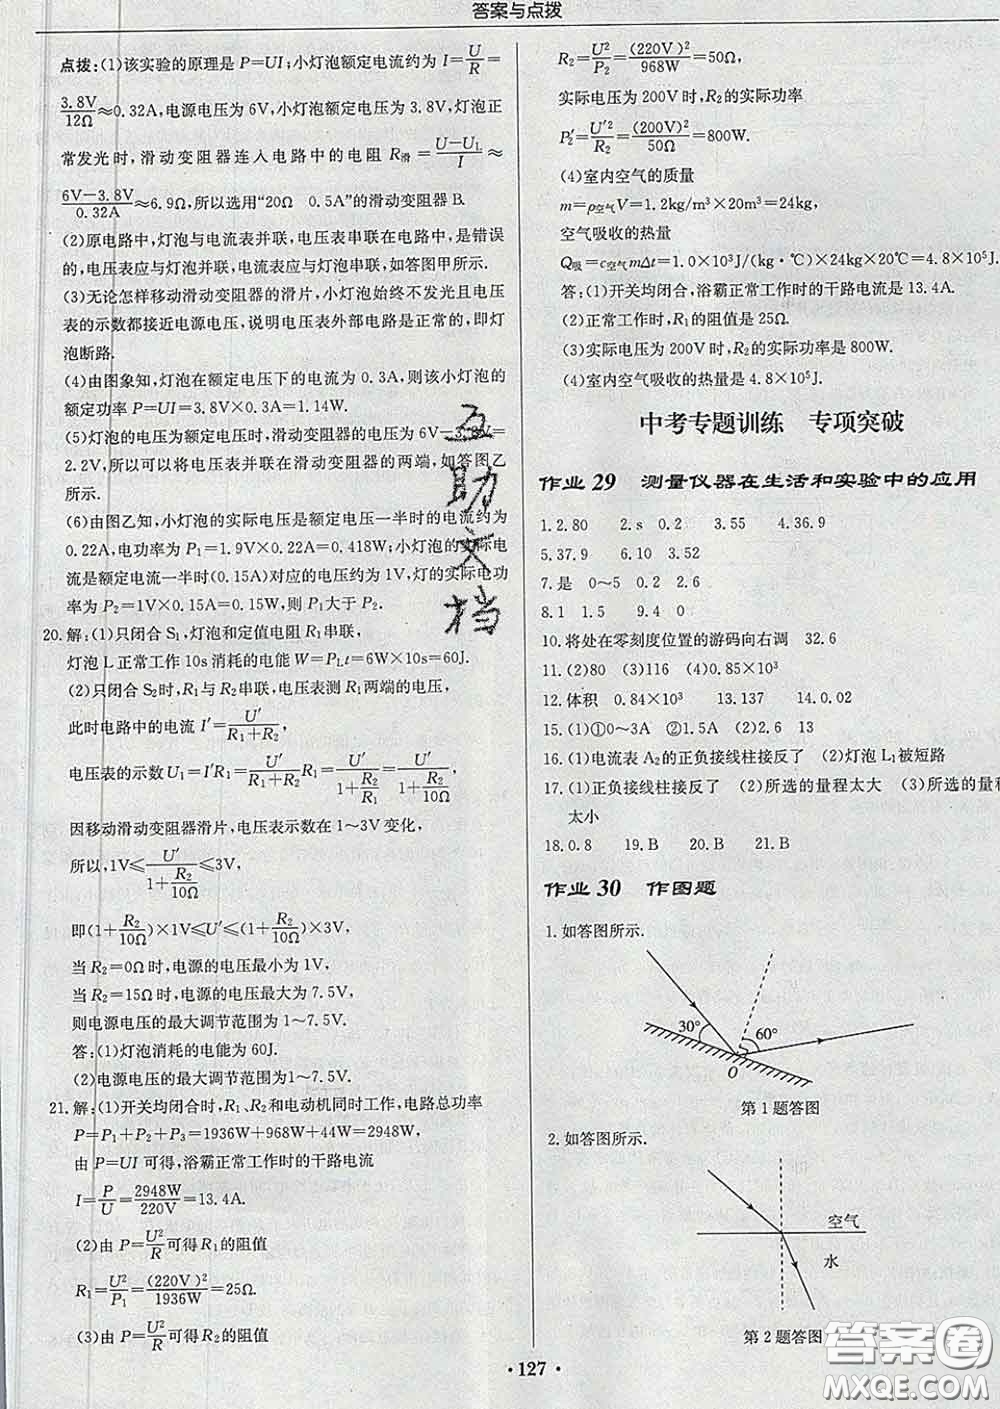 答案与点拨
点拨:(1)该实验的原理是 P=UI;小灯泡额定电流约为 I=U/R=
3.8V/12Ω≈0.32A,电源电压为 6V,小灯泡额定电压为 3.8V,灯泡正
常发光时,滑动变阻器连入电路中的电阻 R滑=(U−UL)/I≈
(6V−3.8V)/0.32A≈6.9Ω,所以选用“20Ω 0.5A”的滑动变阻器 B.
(2)原电路中,灯泡与电流表并联,电压表串联在电路中,是错误
的,电压表应与灯泡并联,电流表应与灯泡串联,如答图甲所示.
(3)无论怎样移动滑动变阻器的滑片,小灯泡始终不发光且电压
表的示数都接近电源电压,说明电压表外部电路是正常的,即灯
泡断路.
(4)由图象知,灯泡在额定电压下的电流为 0.3A,则该小灯泡的
额定功率 P=UI=3.8V×0.3A=1.14W.
(5)灯泡的电压为额定电压时,滑动变阻器的电压为 6V−3.8V=
2.2V,所以可以将电压表并联在滑动变阻器的两端,如答图乙
所示.
(6)由图乙知,小灯泡的实际电压是额定电压一半时的电流约为
0.22A,电功率为 P1=1.9V×0.22A=0.418W;小灯泡的实际电
流是额定电流一半时(0.15A)对应的电压约为 1V,灯的实际电功
率为 P2=1V×0.15A=0.15W,则 P1大于 P2.
20.解:(1)只闭合 S1,灯泡和定值电阻 R1串联,
灯泡 L 正常工作 10s 消耗的电能 W=PLt=6W×10s=60J.
(2)只闭合 S2时,R1与 R2串联,电压表测 R1两端的电压,
此时电路中的电流 I′=U′/(R1+R2),
电压表的示数 U1=I′R1=U′/(R1+R2)R1=U′/(1+R2/R1)=U′/(1+R2/10Ω),
因移动滑动变阻器滑片,电压表示数在 1~3V 变化,
所以,1V≤U′/(1+R2/10Ω)≤3V,
即(1+R2/10Ω)×1V≤U′≤(1+R2/10Ω)×3V,
当 R2=0Ω 时,电源的电压最小为 1V,
当 R2=15Ω 时,电源的电压最大为 7.5V,
则电源电压的最大调节范围为 1~7.5V.
答:(1)灯泡消耗的电能为 60J.
(2)电源电压的最大调节范围为1~7.5V.
21.解:(1)开关均闭合时,R1、R2和电动机同时工作,电路总功率
P=P1+P2+P3=1936W+968W+44W=2948W,
由 P=UI 可得,浴霸正常工作时的干路电流
I=P/U=2948W/220V=13.4A.
(2)由 P=U²/R可得 R1的阻值
R1=U²/P1=(220V)²/1936W=25Ω.
(3)由 P=U²/R可得 R2的阻值
R2=U²/P2=(220V)²/968W=50Ω,
实际电压为 200V 时,R2的实际功率
P2′=U′²/R2=(200V)²/50Ω=800W.
(4)室内空气的质量
m=ρ空气V=1.2kg/m³×20m³=24kg,
空气吸收的热量
Q吸=c空气mΔt=1.0×10³J/(kg·℃)×24kg×20℃=4.8×10⁵J.
答:(1)开关均闭合,浴霸正常工作时的干路电流是 13.4A.
(2)正常工作时,R1的阻值是 25Ω.
(3)实际电压为 200V 时,R2的实际功率是 800W.
(4)室内空气吸收的热量是 4.8×10⁵J.
中考专题训练 专项突破
作业 29 测量仪器在生活和实验中的应用
1.2.80 2.s 0.2 3.55 4.36.9
5.37.9 6.10 3.52
7.是 0~5 0.2 2.6
8.1 1.5 9.4 0
10.将处在零刻度位置的游码向右调 32.6
11.(2)80 (3)116 (4)0.85×10³
12.体积 0.84×10³ 13.137 14.0.02
15.(1)①0~3A ②1.5A (2)2.6 13
16.(1)电流表 A2的正负接线柱接反了 (2)灯泡 L1被短路
17.(1)正负接线柱接反了 (2)所选的量程太大 (3)所选的量程
太小
18.0.8 19.B 20.B 21.B
作业 30 作图题
1.如答图所示.
30°
60°
O
第 1 题答图
2.如答图所示.
空气
水
第 2 题答图
· 127 ·
互助文档
答案圈
MXQE.COM